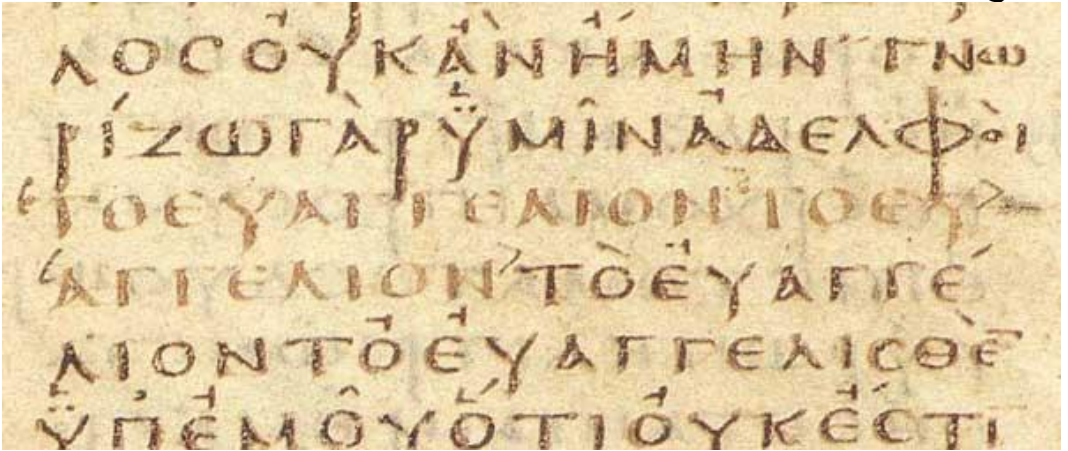 ΛΟCΟΥΚΑΝΗΜΗΝ ΓΝω
ΡΙΖωΓΑΡΫΜΙΝΑΔΕΛΦΟΙ
ΤΟΕΥΑΓΓΕΛΙΟΝΤΟΕΥ
ΑΓΓΕΛΙΟΝΤΟΕΥΑΓΓΕ
ΛΙΟΝΤΟΕΥΑΓΓΕΛΙCΘΕ̅
ΫΠΕΜΟΥΟΤΙΟΥΚΕCΤΙ